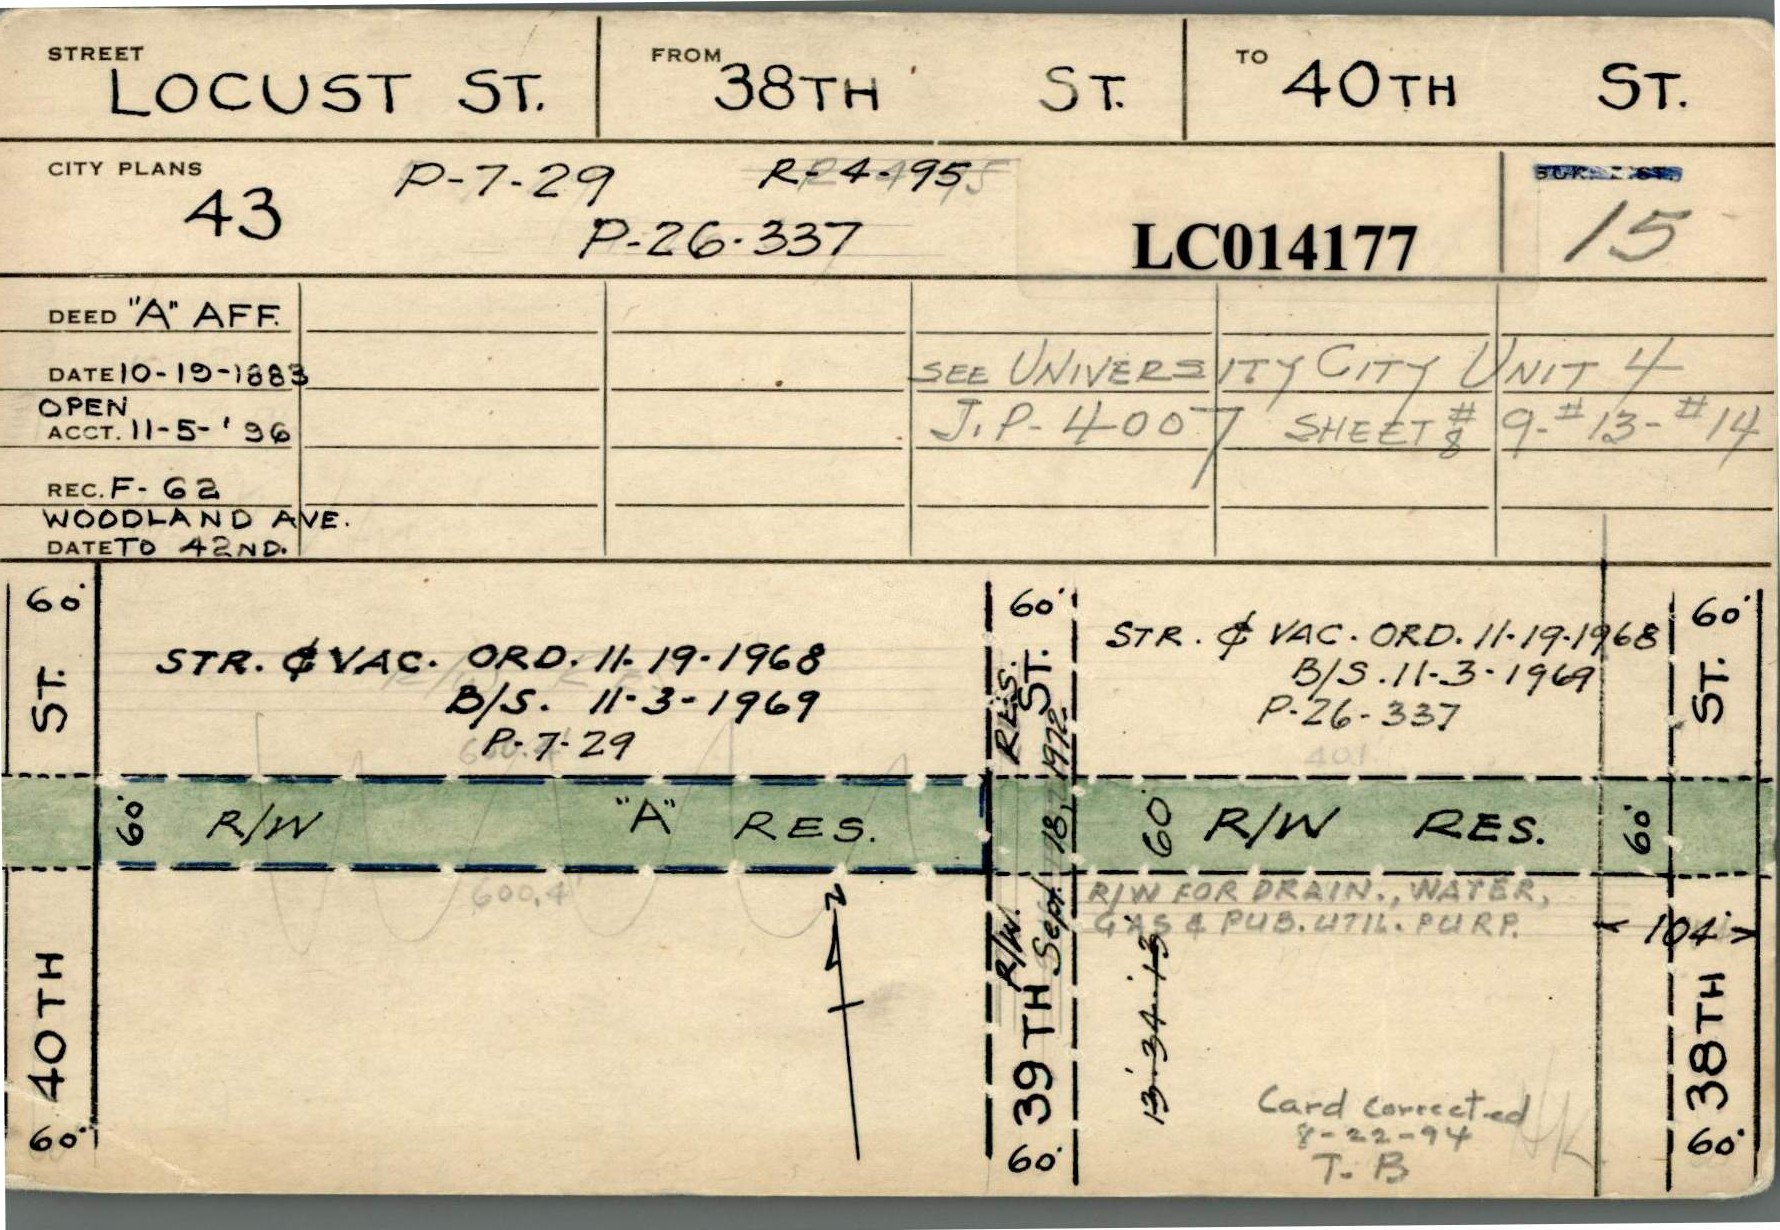 STREET LOCUST ST. FROM 38TH ST. TO 40TH ST.
CITY PLANS 43 P-7-29 R-4-95
P-26-337
LC014177
15
DEED "A" AFF.
DATE 10-19-1883
OPEN
ACCT. 11-5-'96
REC. F-62
WOODLAND AVE.
DATE TO 42ND.
SEE UNIVERSITY CITY UNIT 4
J.P-4007 SHEET #8 9-#13-#14
60'
ST.
40TH
60'
STR. & VAC. ORD. 11-19-1968
B/S. 11-3-1969
P-7-29
600.4'
60' R/W "A" RES.
600.4'
N
60'
39TH ST.
R/W. RES.
Sept. 18, 1972
60'
STR. & VAC. ORD. 11-19-1968
B/S. 11-3-1969
P-26-337
401
60' R/W RES. 60'
R/W FOR DRAIN., WATER,
GAS & PUB. UTIL. PURP.
13'-34'-13
104'
60'
ST.
38TH
60'
Card corrected
8-22-94
T. B